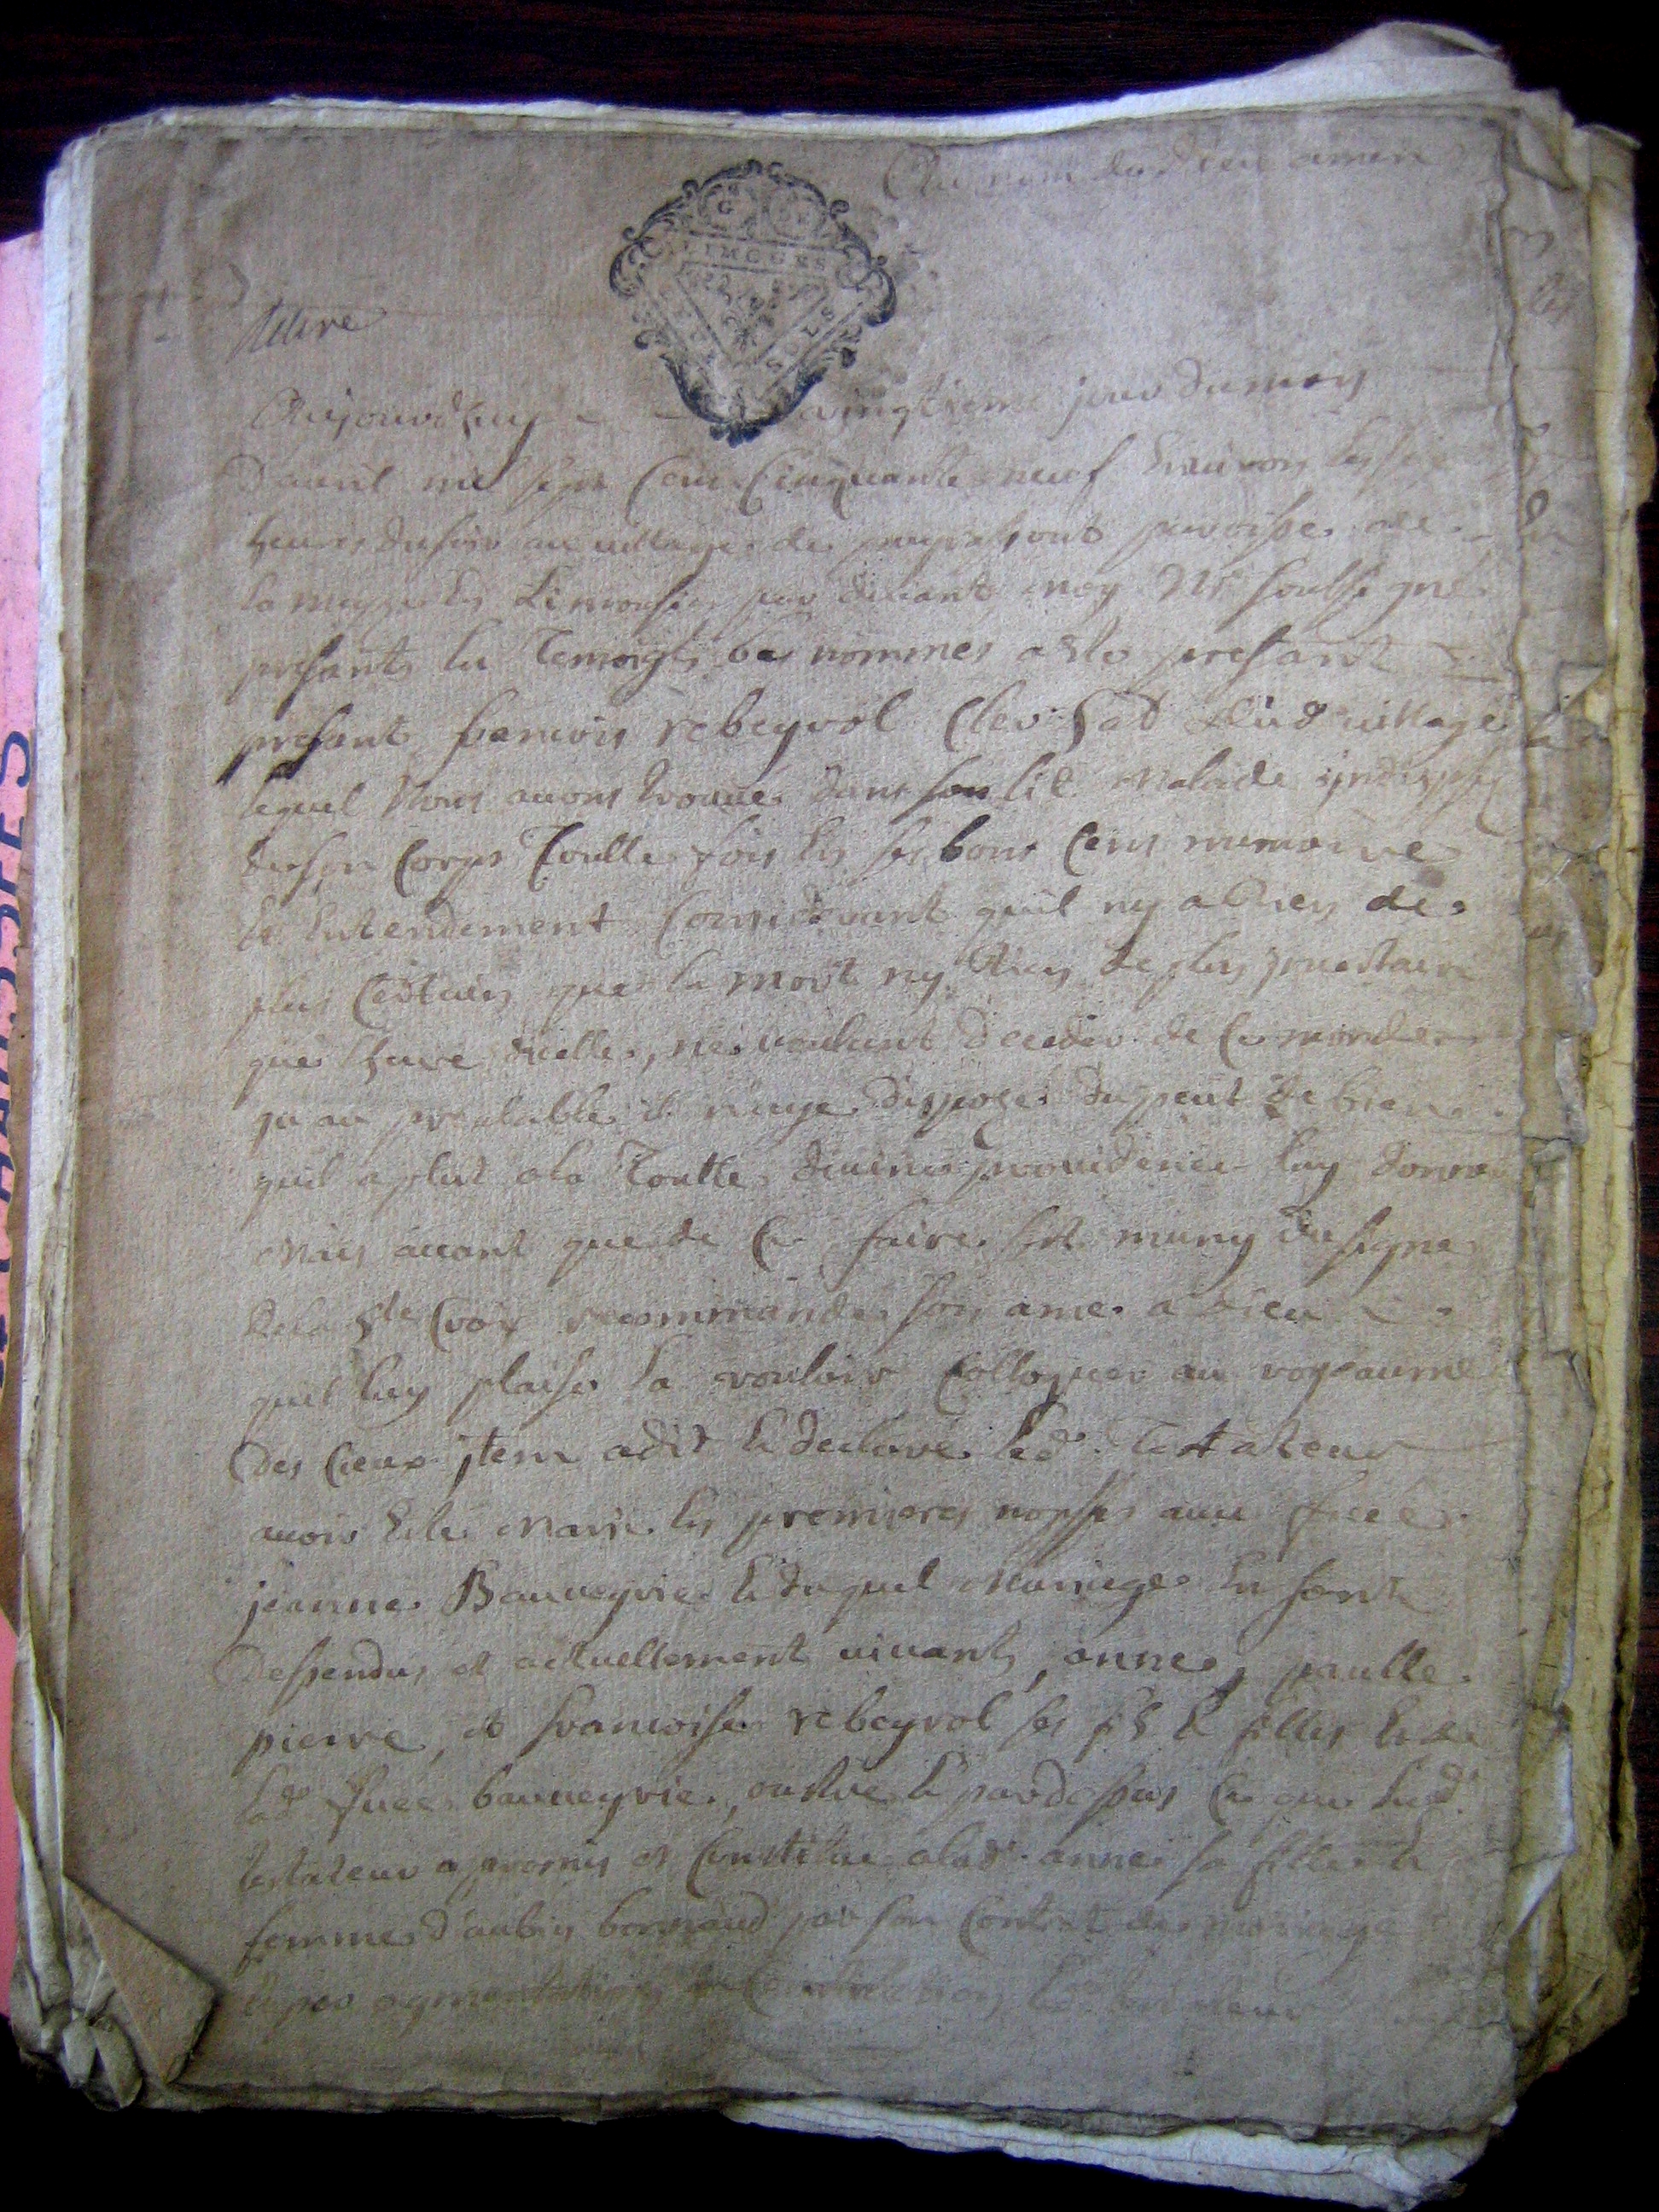 Au nom de dieu amen
G DE
LIMOGES
SOLS
Aujourdhuy vingtieme jour du moy
davril mil sept Cent Cinquante neuf Environ les six
heures du soir au village de parroisse de
la Limousin par devant moy Nre soussigné
presants les Temoigts bas nommes a este presant
presant francois rebeyrol dud village
lequel Nous avons trouve dans son lit Malade
de son Corps Toutte fois En ses bons Cens memoire
Et Entendement Considerant quil ny a Rien de
plus Certain que la mort ny Rien de plus jncertain
que lheure dicelle, ne voulant deceder de Ce monde
qu au prealable il naye dispozé du peut de bien
quil a plut a la Toutte divine providence luy donne
Mais avant que de Ce faire sest muny du signe
de la Ste Croix recommande son ame a dieu
quil luy plaise la vouloir Colloquer au royeaume
des Cieux jtem a dit Et declare led. Testateur
avoir Este Marie En premieres nopses avec feue
jeanne Bauveyrie Et duquel Mariage En sont
dessendus et actuellement vivants, anne, paulle
pierre, et francoise rebeyrol ses fils Et filles Et de
lad feue bauveyrie, outtre Et pardessus Ce que led.
testateur a promis et Constitue a lad. anne sa fille Et
femme d'aubin par son Contrat de mariage